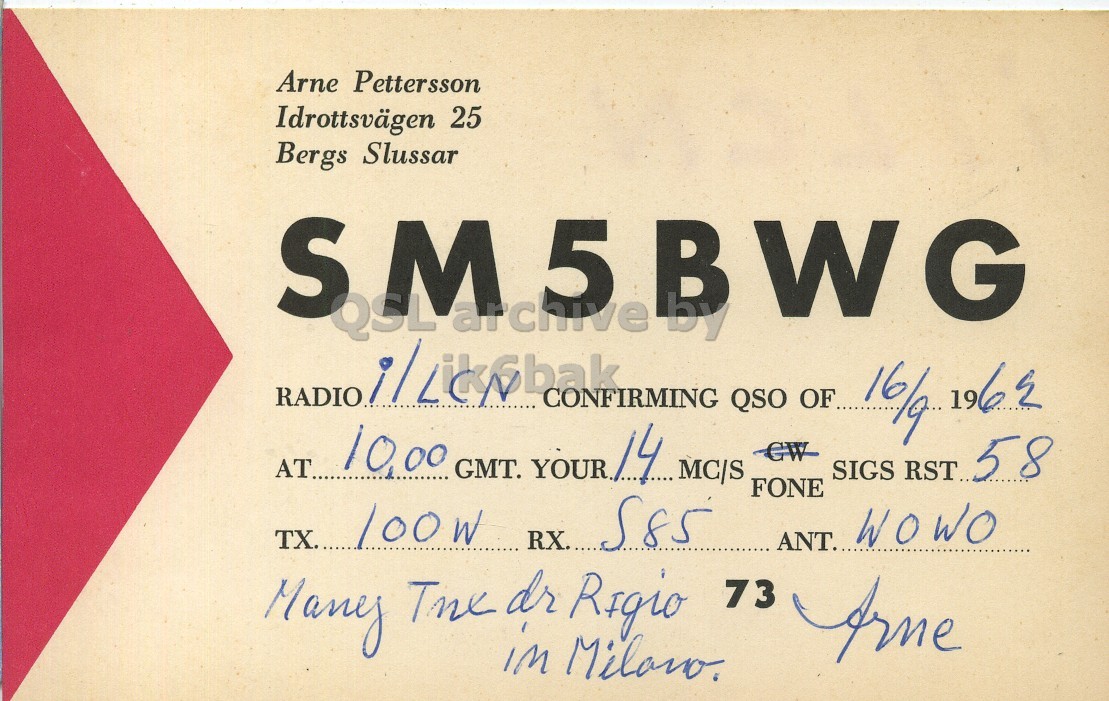 Arne Pettersson
Idrottsvägen 25
Bergs Slussar
SM5BWG
QSL archive by
ik6bak
RADIO i/LCN CONFIRMING QSO OF 16/9 1962
AT 10,00 GMT. YOUR 14 MC/S CW FONE SIGS RST 58
TX. 100W RX. S85 ANT. WOWO
Maney Tnx dr Rigio 73 Arne
in Milano.